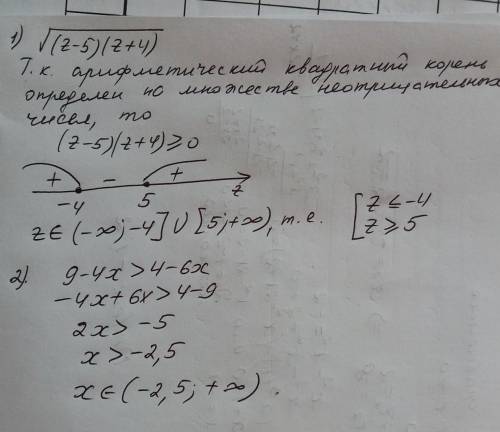 1) √(z-5)(z+4)
Т.к. арифметический квадратный корень
определен на множестве неотрицательных
чисел, то
(z-5)(z+4)≥0
+ - +
-4 5 z
z∈(-∞;-4]∪[5;+∞), т.е. [z≤-4
z≥5
2). 9-4x>4-6x
-4x+6x>4-9
2x>-5
x>-2,5
x∈(-2,5;+∞).